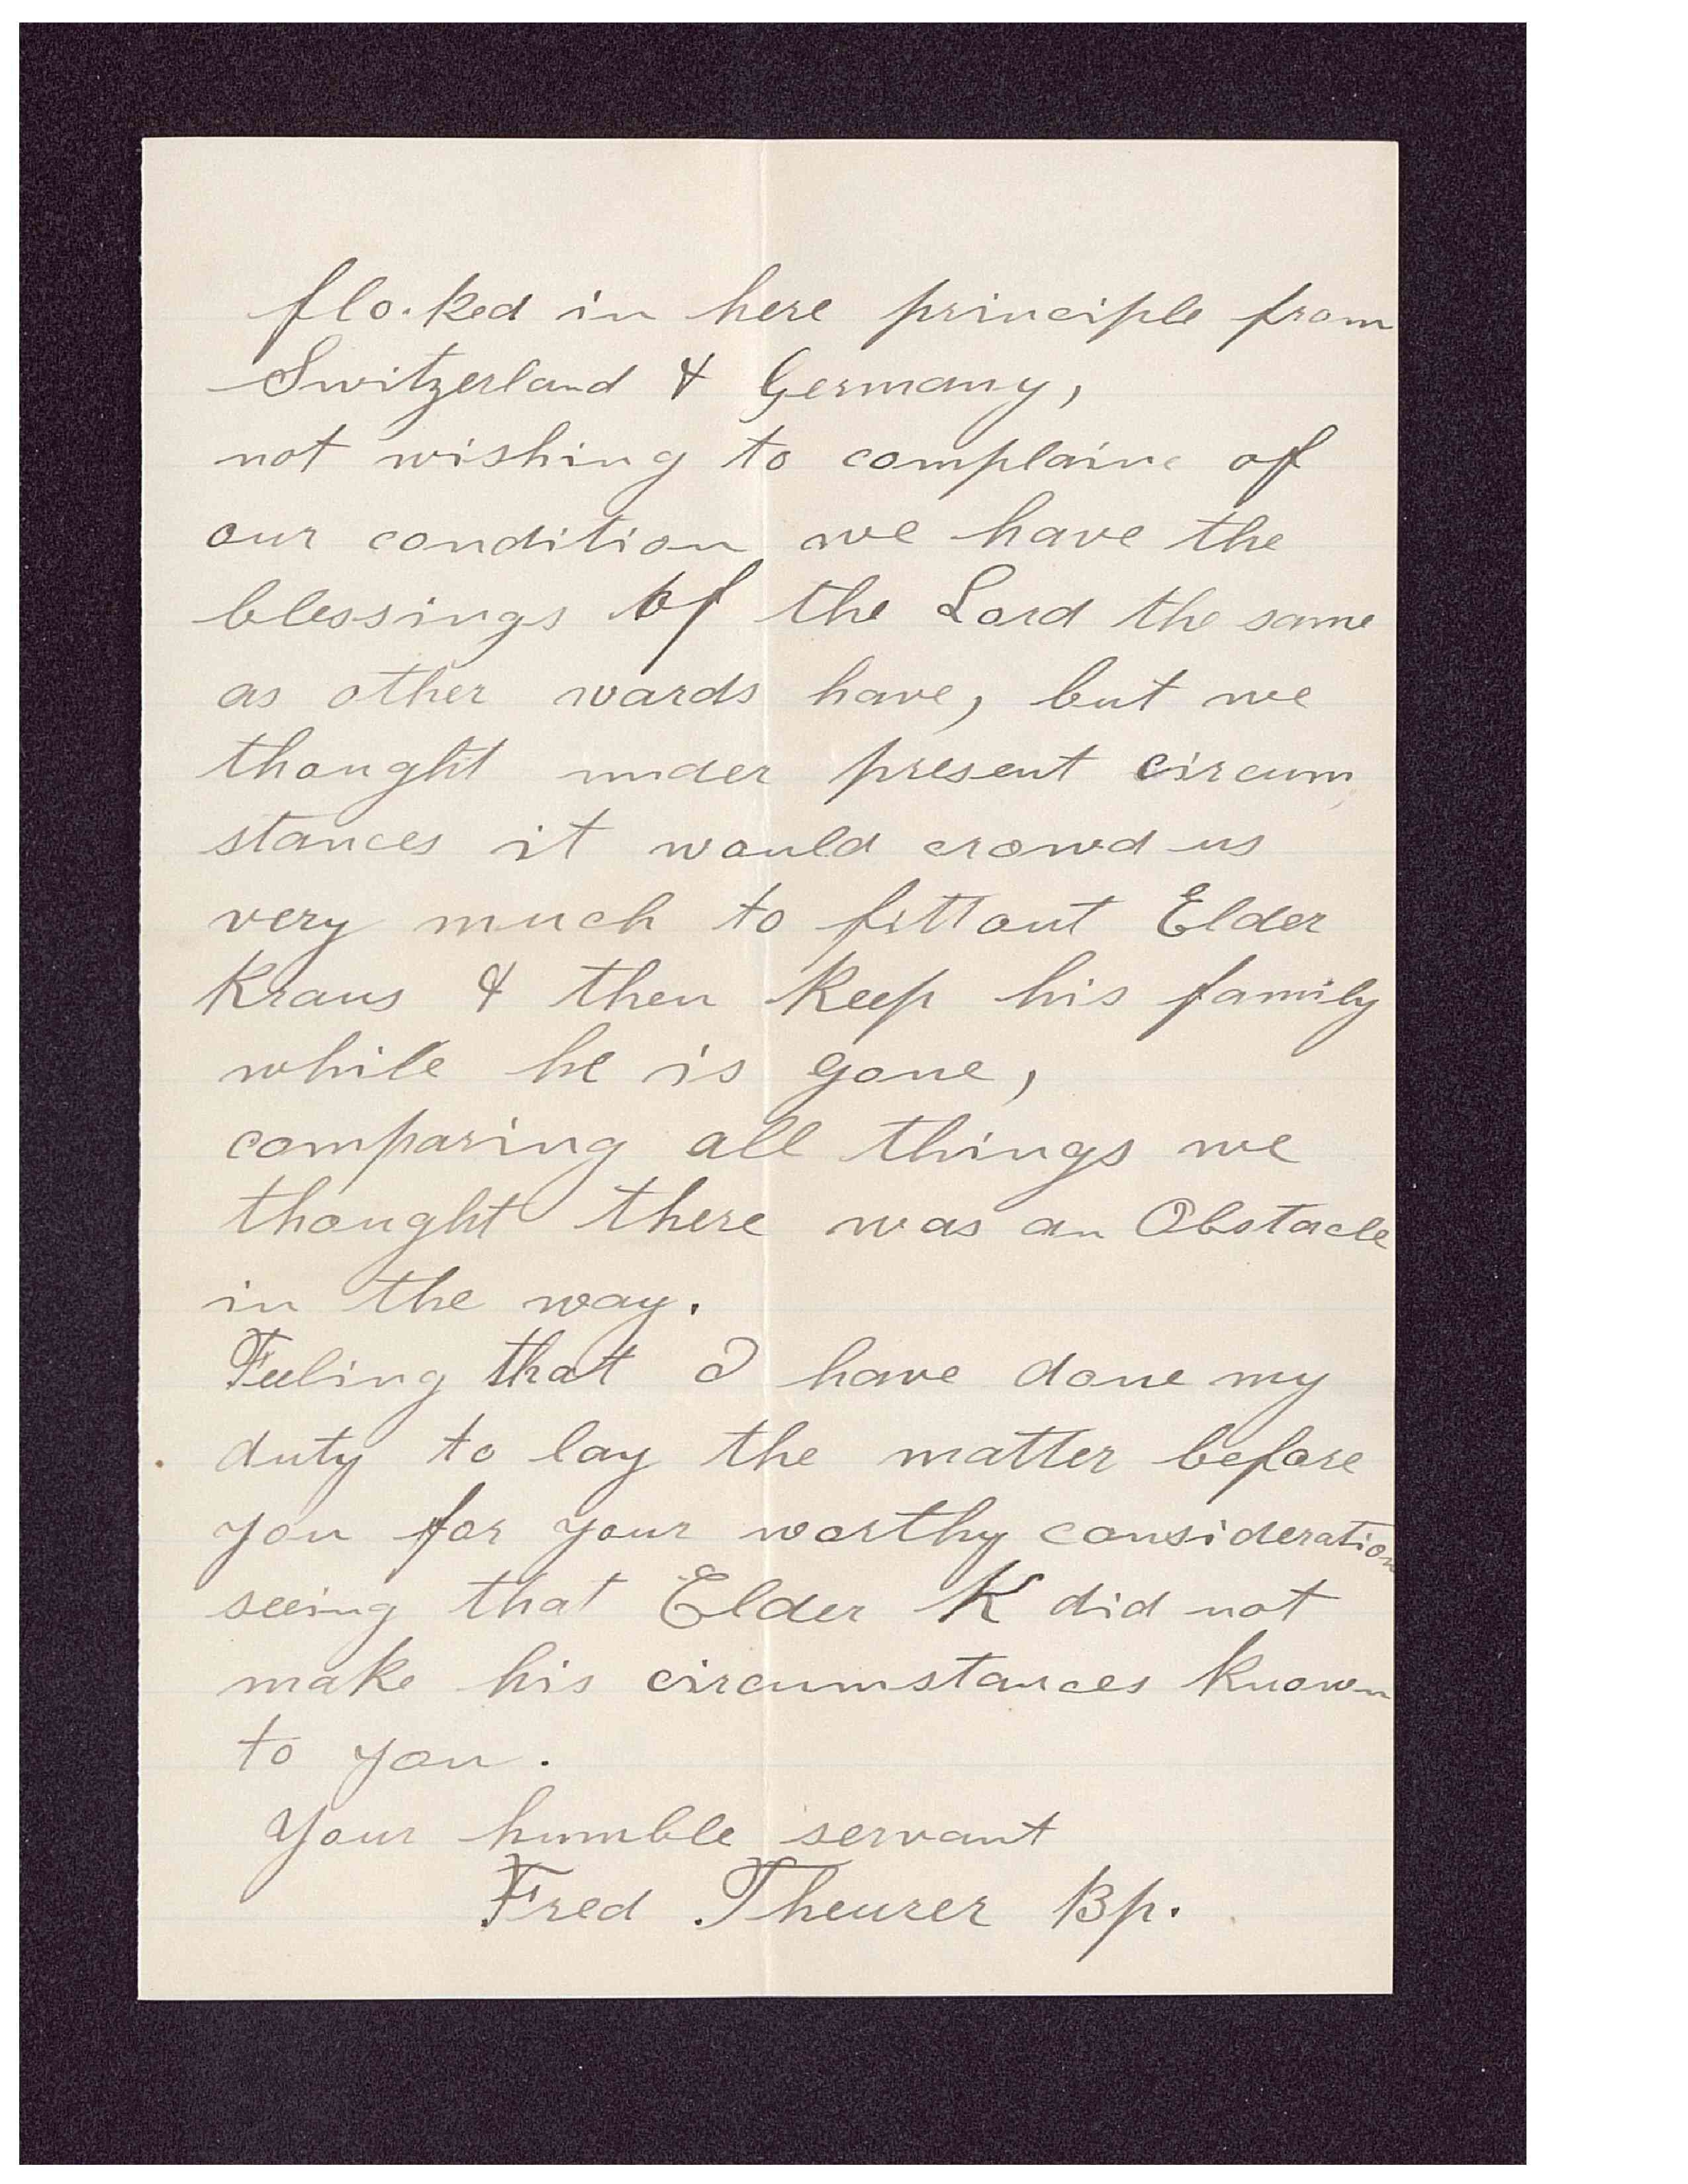 flo.ked in here principle from
Switzerland & Germany,
not wishing to complaine of
our condition we have the
blessings of the Lord the same
as other wards have, but we
thought under present circum
stances it would crowd us
very much to fitt out Elder
Kraus & then keep his family
while he is gone,
comparing all things we
thought there was an Obstacle
in the way.
Feeling that I have done my
duty to lay the matter before
you for your worthy consideration
seeing that Elder K did not
make his circumstances known
to you.
Your humble servant
Fred Theurer Bp.